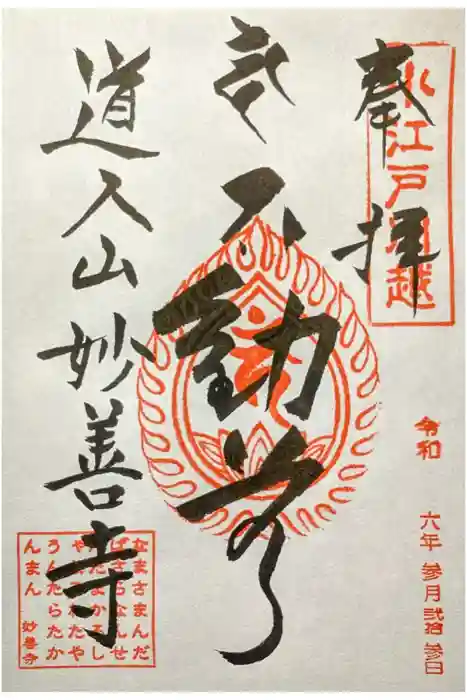 奉拝
小江戸川越
令和 六年 参月 弐拾参日
不動尊
道入山妙善寺
なまさまんだ
ばさらなんせ
んたまかろし
やたそわたや
うんたらたか
んまん 妙善寺